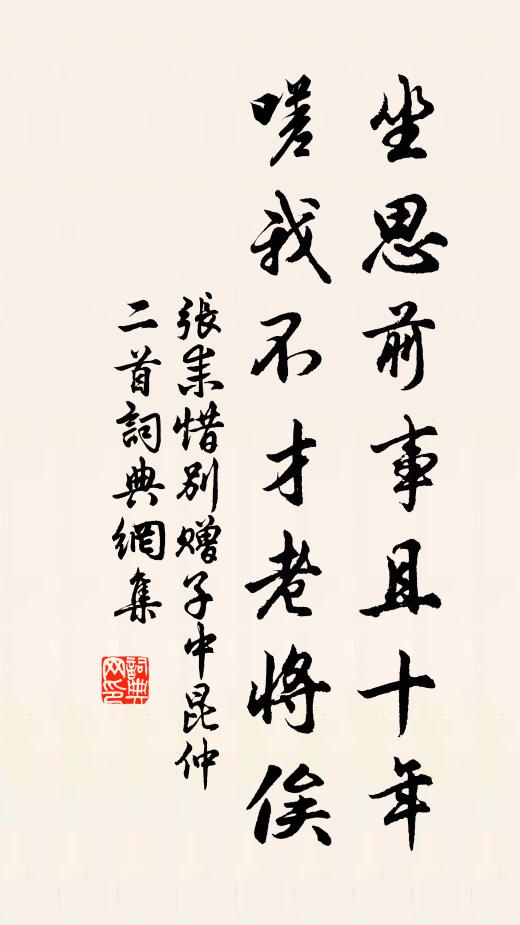 坐思前事且十年
嗟我不才老將俟
張耒惜別贈子中昆仲
二首詞典網集
詞典網印